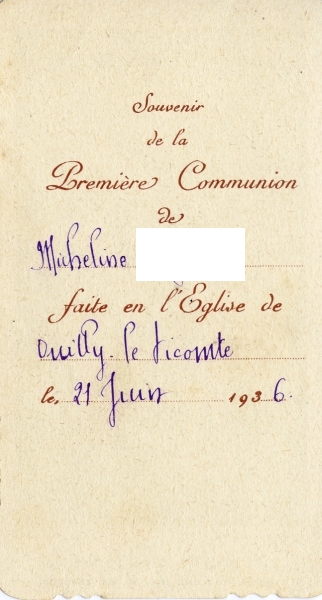 Souvenir
de la
Première Communion
de
Micheline
faite en l'Eglise de
Ouilly le Vicomte
le, 21 Juin 1936.